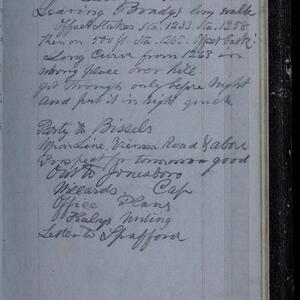 Leaving O'Bradys long walk
Offset Stakes Sta. 1233. Sta. 1258
then on 500 ft. Sta. 1263. Offset back!
Long Curve from 1263 in
wrong place over hill
Got through only before night
and put it in right quick
Party to Bissels
Main Line. Vienna Road & above
Prospect for tomorrow good
Out to Jonesboro
Willards. Cap
Office Plans
Halys writing
Letter to Spafford